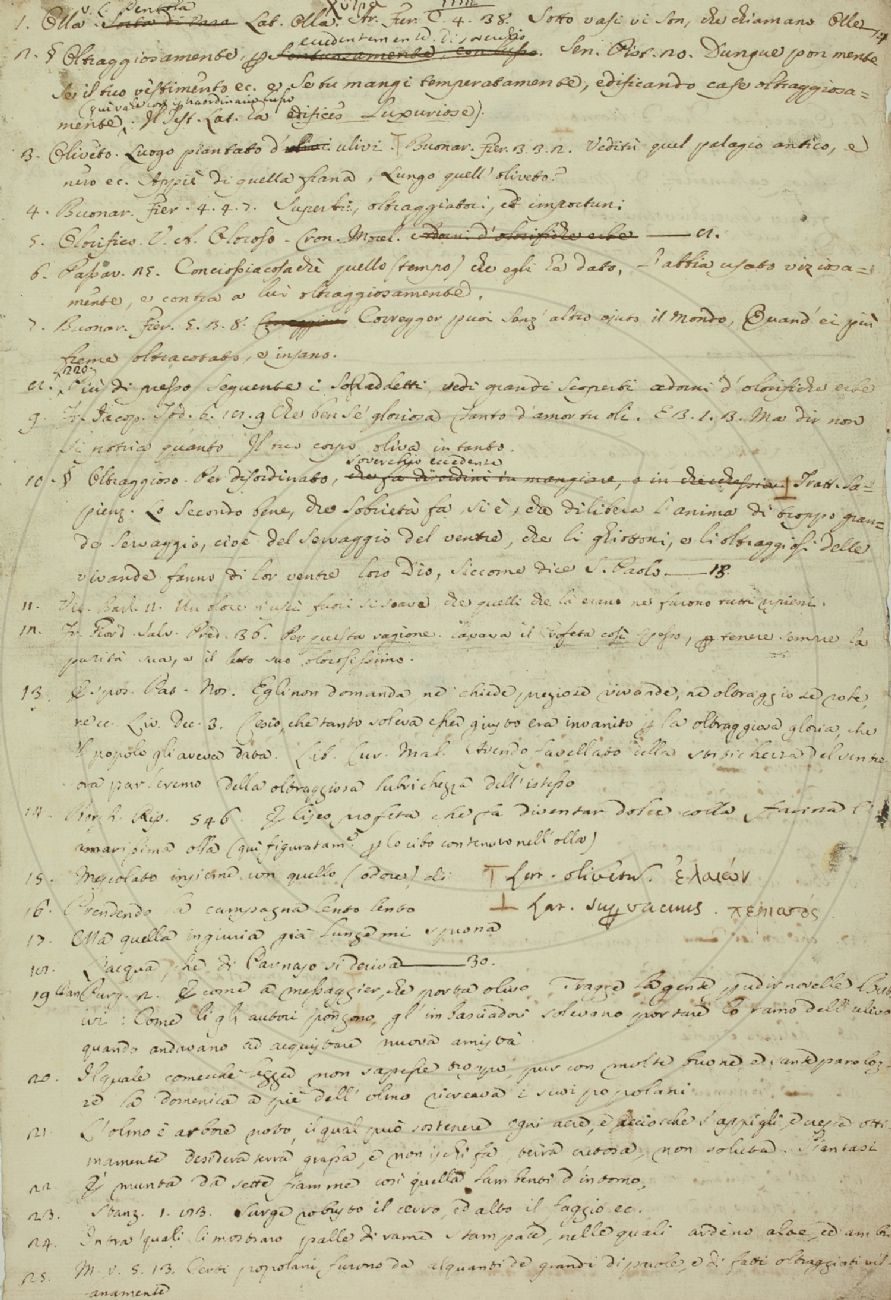 v. l. Pentola
1. Olla Sorta di vaso Lat. Olla. Gr. χύτρα Fier. 4. 38. Sotto vasi vi son, che chiamano Olle
evidentemente, di soverchio
2. § Oltraggiosamente, p Sen. Pist. 20. Dunque pon mente
se il tuo vestimento ec. e se tu mangi temperatamente, edificando case oltraggiosa=
qui vale con straordinario lusso
mente. Il test. Lat. ha edifices Luxuriose).
3. Oliveto. Luogo piantato d' ulivi. Buonar. Fier. 3. 3. 2. Veditù quel palagio antico, e
nero ec. Appiè di quella frana, Lungo quell' oliveto?
4. Buonar. Fier. 4. 4. 7. Superbi, oltraggiatori, ed importuni
5. Olorifico. V. A. Oloroso. Cron. Morel. adorni d'olorifiche erbe
6. Passav. 25. Conciossiacosachè quello (tempo) che egli ha dato, l'abbia usato viziosa=
mente, e contra a lui oltraggiosamente.
7. Buonar. Fier. 5. 3. 8. Corregger puoi senz' altro ajuto il mondo, Quand' ei più
freme oltracotato, e insano.
220
Più di presso seguente i sopraddetti, vedi grandi scoperti adorni d'olorifiche erbe
9. Fr. Jacop. Tod. 6. 9 Che ben se' gloriosa Tanto d'amor tu oli. E 3. 1. 3. Ma dir non
si potria quanto Il tuo corpo oliva in tanto.
soverchio eccedente
10. § Oltraggioso. Per disordinato, che fa disordini in mangiare, o in Tratt. Sa=
pienz. Lo secondo bene, che sobrietà fa, si è, che dilibera l'anima di troppo gran=
de servaggio, cioè del servaggio del ventre, che li ghiottoni, e li oltraggiosi delle
vivande fanno di lor ventre loro Dio, siccome dice S. Paolo — 18.
11. Vit. Barl. 11. Un olore n'uscì fuori sì soave che quelli che là erano ne furono tutti ripieni.
12. Fr. Giord. Salv. Pred. 36. Per questa ragione lavava il Profeta così spesso, p tenere sempre la
purità sua, e il letto suo olorosissimo.
13. Espos. Pat. Nos. Egli non domanda, nè chiede preziose vivande, nè oltraggiose robe,
ec. Liv. Dec. 3. che tanto soleva esser giusto era invanito p la oltraggiosa gloria, che
Il popolo gli aveva data. Lib. Cur. Mal. Avendo favellato della stitichezza del ventre
ora parleremo della oltraggiosa lubrichezza dell' istesso
14. Borgh. Rip. 546. Eliseo profeta che fa diventar dolce colla farina l'
amarissima olla (qui figuratam.e p lo cibo contenuto nell' olla)
15. Mescolato insieme con quello (odore) di Lat. olivetum. ἐλαιών
16. Prendendo la campagna lento lento Lat. supervacuus. περισσός.
17. Olla quella ingiuria già lunge mi sprona
L'acqua, che di Parnaso si deriva — 30.
19. Dan. Purg. 2. E come a messaggier, che porta olivo, Tragge la gente p udir novelle. But.
ivi: Come li gli autori pongono, gl' imbasciadori solevano portare lo ramo dell' ulivo
quando andavano ad acquistare nuova amistà
20. Il quale comechè legger non sapesse troppo, pur con molte buone e sante parolozz-
ze la domenica a piè dell' olmo ricreava i suoi popolani
21. L'olmo è arbore noto, il qual può sostenere ogni aere, e acciocchè s'appigli, e cresca otti
mamente desidera terra grassa, e non ischifa terra cretosa, non soluta. Piantasi
22. E munta da sette fiamme così quella lambenti d'intorno,
23. Stanz. 1. Surge robusto il cerro, ed alto il faggio ec.
24. Intra' quali si mostravo palle di rame stampate, nelle quali ardeno aloe, ed am
25. M. V. 5. 13. Certi popolani furono da alquanti de' grandi di parole, e di fatti oltraggiati vil
lanamente